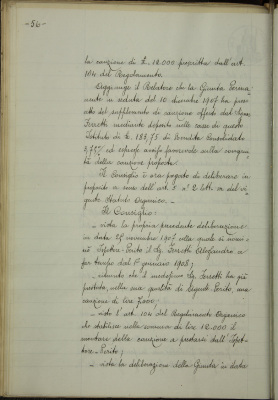 -56-
la cauzione di £. 12.000 prescritta dall'art.
104 del Regolamento.
Aggiunge il Relatore che la Giunta Perma
nente in seduta del 10 dicembre 1907 ha preso
atto del supplemento di cauzione offerto dal Sig.
Ferretti mediante deposito nelle casse di questo
Istituto di £. 183,75 di Rendita Consolidato
3,75% ed espresse avviso favorevole sulla congrui
tà della cauzione prestata.
Il Consiglio è ora pregato di deliberare in
proposito a sensi dell'art. 5 n° 2 lett. del vi-
gente Statuto Organico.-
Il Consiglio:
- vista la propria precedente deliberazione
in data 29 novembre 1907 colla quale si nomi-
nò Ispettore-Perito il Sig. Ferretti Alessandro a
far tempo dal 1° gennaio 1908;
- ritenuto che il medesimo Sig. Ferretti ha già
prestata, nella sua qualità di Perito, una
cauzione di lire
- visto l'art. 104 del Regolamento Organico
che stabilisce nella somma di lire 12.000 il
montare della cauzione a prestarsi dall'Ispet-
tore-Perito;
- vista la deliberazione della Giunta in data